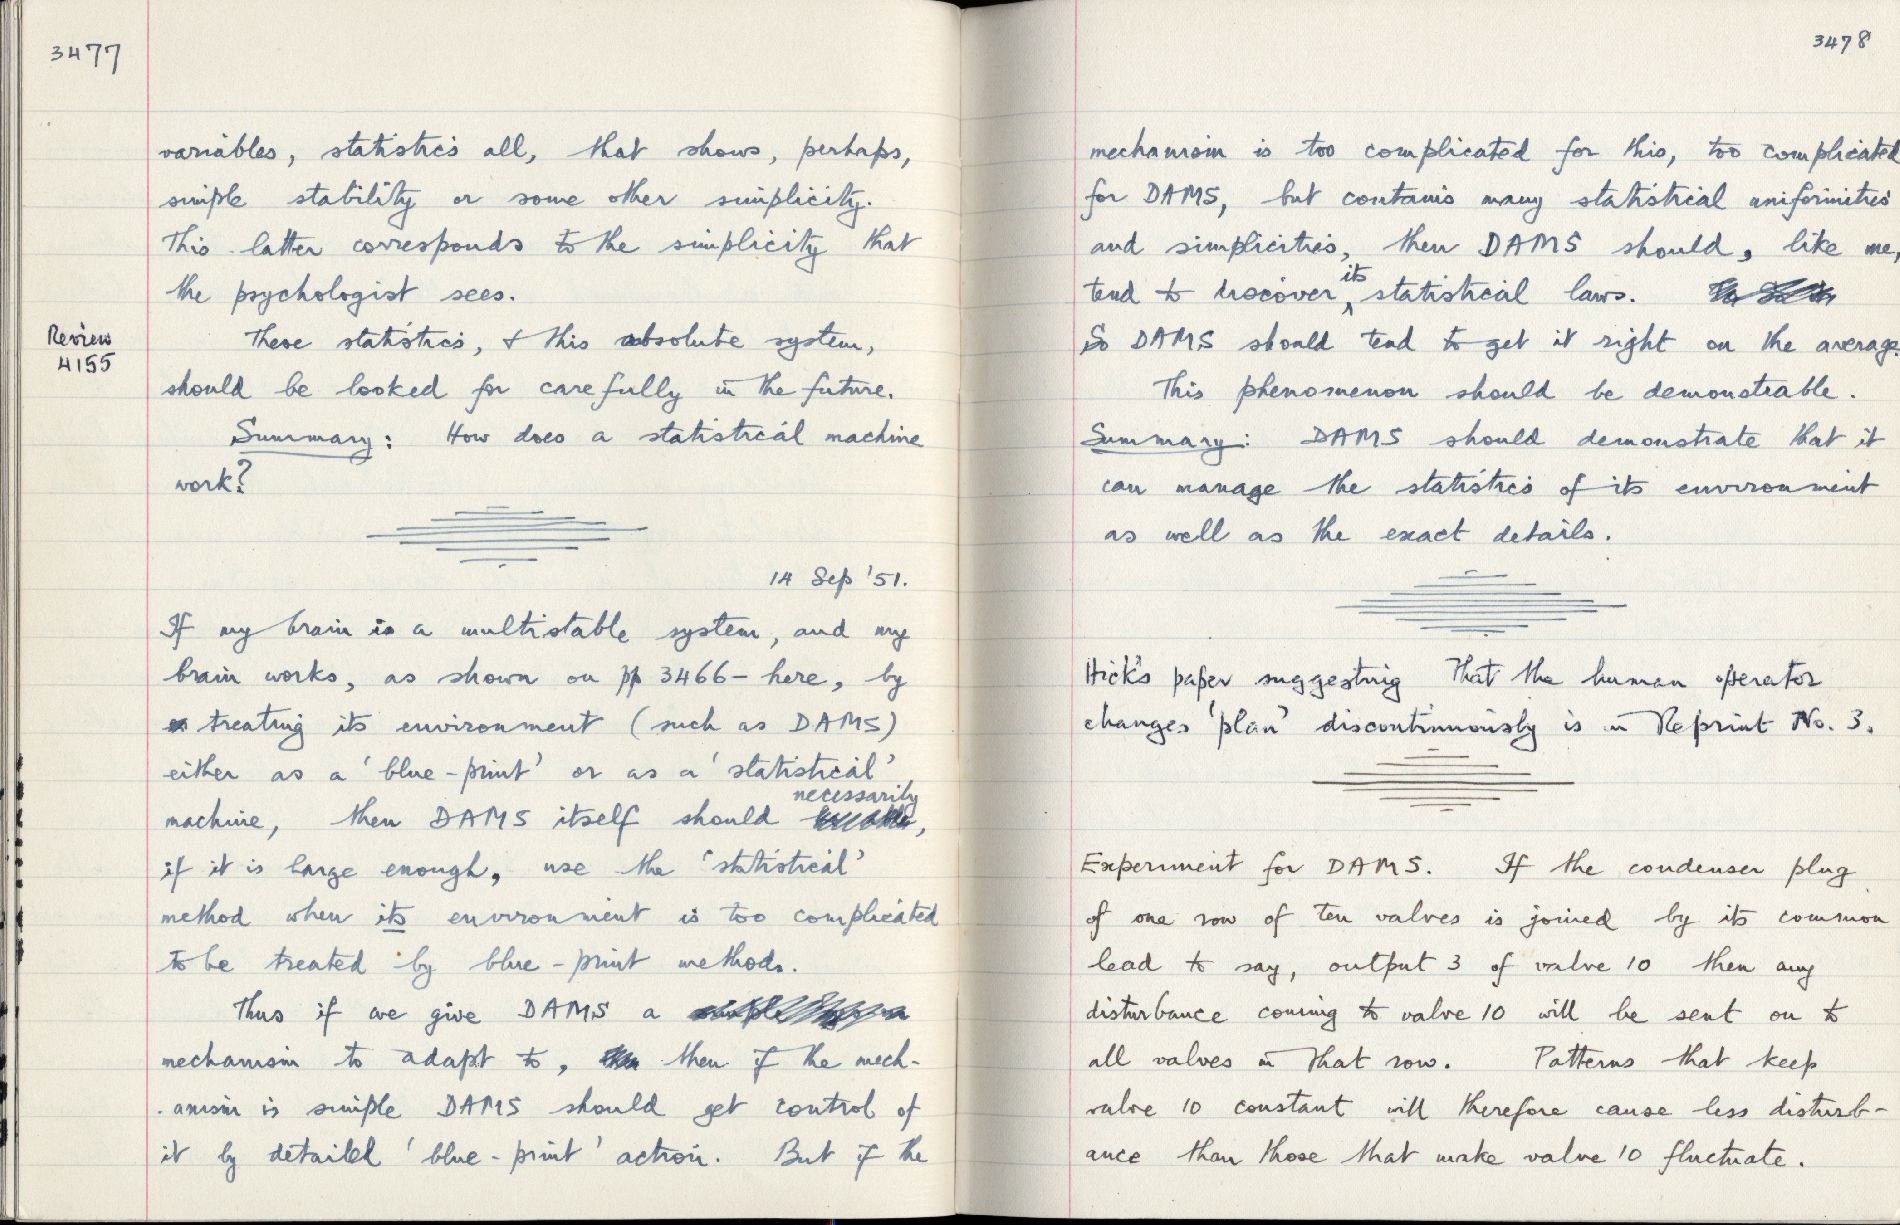 3477
variables, statistics all, that shows, perhaps,
simple stability or some other simplicity.
This latter corresponds to the simplicity that
the psychologist sees.
Review
4155
These statistics, & this absolute system,
should be looked for carefully in the future.
Summary: How does a statistical machine
work?
14 Sep '51.
If my brain is a multistable system, and my
brain works, as shown on pp 3466– here, by
treating its environment (such as DAMS)
either as a 'blue-print' or as a 'statistical'
necessarily
machine, then DAMS itself should ,
if it is large enough, use the 'statistical'
method when its environment is too complicated
to be treated by blue-print methods.
Thus if we give DAMS a
mechanism to adapt to, then if the mech-
anism is simple DAMS should get control of
it by detailed 'blue-print' action. But if the
3478
mechanism is too complicated for this, too complicated
for DAMS, but contains many statistical uniformities
and simplicities, then DAMS should, like me,
its
tend to discover statistical laws.
So DAMS should tend to get it right on the average.
This phenomenon should be demonstrable.
Summary: DAMS should demonstrate that it
can manage the statistics of its environment
as well as the exact details.
Hick's paper suggesting that the human operator
changes 'plan' discontinuously is in Reprint No. 3.
Experiment for DAMS. If the condenser plug
of one row of ten valves is joined by its common
lead to say, output 3 of valve 10 then any
disturbance coming to valve 10 will be sent on to
all valves in that row. Patterns that keep
valve 10 constant will therefore cause less disturb-
ance than those that make valve 10 fluctuate.